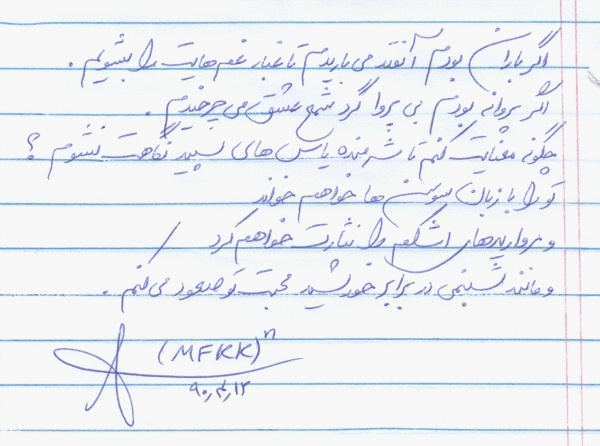 اگر باران بودم آنقدر می باریدم تا غبار غم هایت را بشویم .
اگر پروانه بودم بی پروا گرد شمع عشق می چرخیدم .
چگونه صدایت کنم تا شرمنده یاس های سپید نگاهت نشوم ؟
تو را با زبان سوسن ها خواهم خواند
و مرواریدهای اشکم را نثارت خواهم کرد
و مانند شبنمی در برابر خورشید محبت تو صعود می کنم .
(MFKK)ⁿ
۹۰٫۴٫۱۲